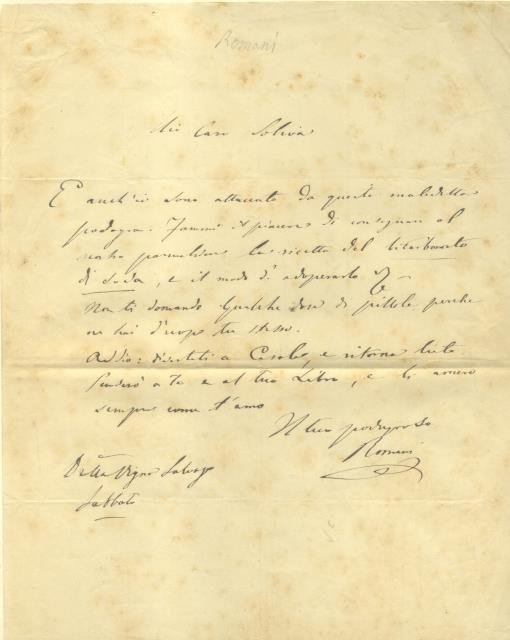 Romani
Mio Caro Soliva
E anch'io sono attaccato da questa maledetta
podagra. Fammi il piacere di consegnare al
nostro la ricetta del
di Soda, e il modo d'adoperarlo
Non ti domando qualche dose di pillole perche
ne hai d'uopo tu stesso.
Addio: divertiti a e ritorna lieto
Penserò a Te e al tuo Libro, e ti amerò
sempre come t'amo
Il tuo podagroso
Romani
Dalla Vigna
Sabbato